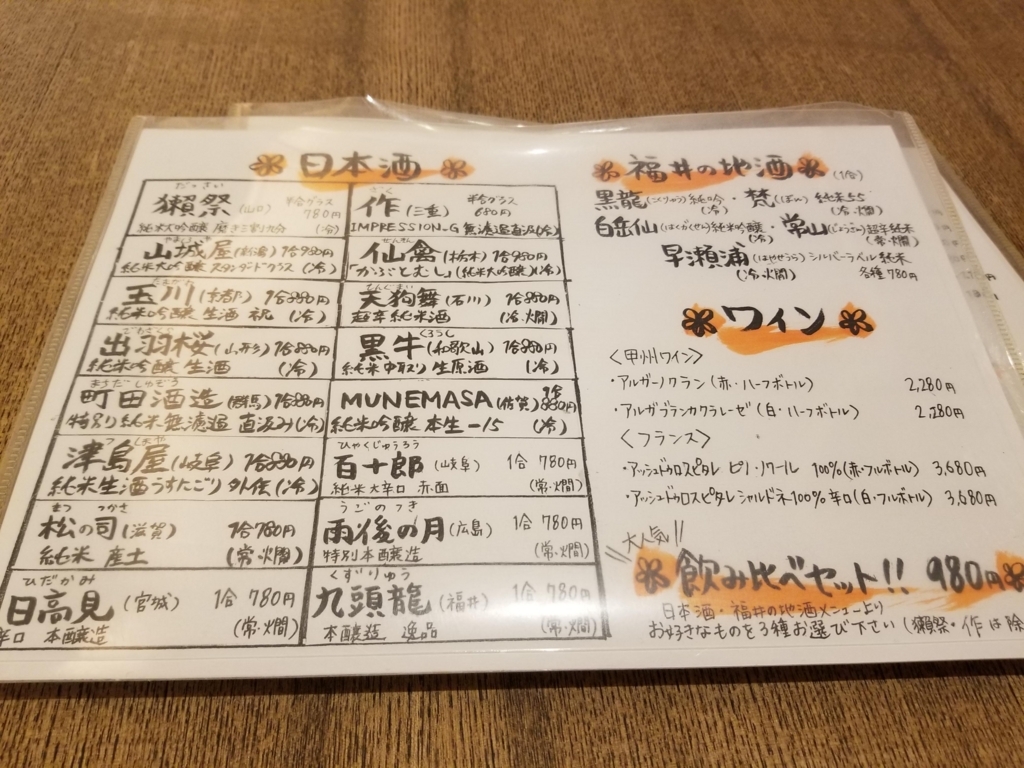 日本酒
だっさい
獺祭 (山口) 半合グラス 780円
純米大吟醸 磨き三割九分 (冷)
ざく
作 (三重) 半合グラス 680円
IMPRESSION-G 無濾過直汲(冷)
山城屋 (新潟) 1合980円
純米大吟醸 スタンダードクラス (冷)
せんきん
仙禽 (栃木) 1合980円
「かぶとむし」(純米大吟醸)(冷)
玉川 (京都) 1合880円
純米吟醸 生酒 祝 (冷)
てんぐまい
天狗舞 (石川) 1合880円
超辛純米酒 (冷・燗)
出羽桜 (山形) 1合880円
純米吟醸 生酒 (冷)
くろうし
黒牛 (和歌山) 1合880円
純米中取り 生原酒 (冷)
まちだしゅぞう
町田酒造 (群馬) 1合880円
特別純米無濾過 直汲み (冷)
MUNEMASA (佐賀) 1合880円
純米吟醸 本生-15 (冷)
つしまや
津島屋 (岐阜) 1合880円
純米生酒うすにごり 外伝 (冷)
ひゃくじゅうろう
百十郎 (岐阜) 1合 780円
純米大辛口 赤面 (常・燗)
まつ つかさ
松の司 (滋賀) 1合780円
純米 産土 (常・燗)
うごのつき
雨後の月 (広島) 1合 780円
特別本醸造 (常・燗)
ひだかみ
日高見 (宮城) 1合 780円
辛口 本醸造 (常・燗)
くずりゅう
九頭龍 (福井) 1合 780円
本醸造 逸品 (常・燗)
福井の地酒 (1合)
黒龍 (こくりゅう) 純吟 (冷)・梵 (ぼん) 純米55 (冷・燗)
白岳仙 (はくがくせん) 純米吟醸 (冷)・常山 (じょうざん) 超辛純米 (常・燗)
早瀬浦 (はやせうら) シルバーラベル 純米 (冷・燗)
各種780円
ワイン
〈甲州ワイン〉
・アルガーノクラン (赤・ハーフボトル) 2,280円
・アルガブランカクラレーゼ (白・ハーフボトル) 2,280円
〈フランス〉
・アッシュドゥロスピタレ ピノ・ノワール 100% (赤・フルボトル) 3,680円
・アッシュドゥロスピタレ シャルドネ100% 辛口 (白・フルボトル) 3,680円
大人気!!
飲み比べセット!! 980円
日本酒・福井の地酒メニューより
お好きなものを3種お選び下さい (獺祭・作は除